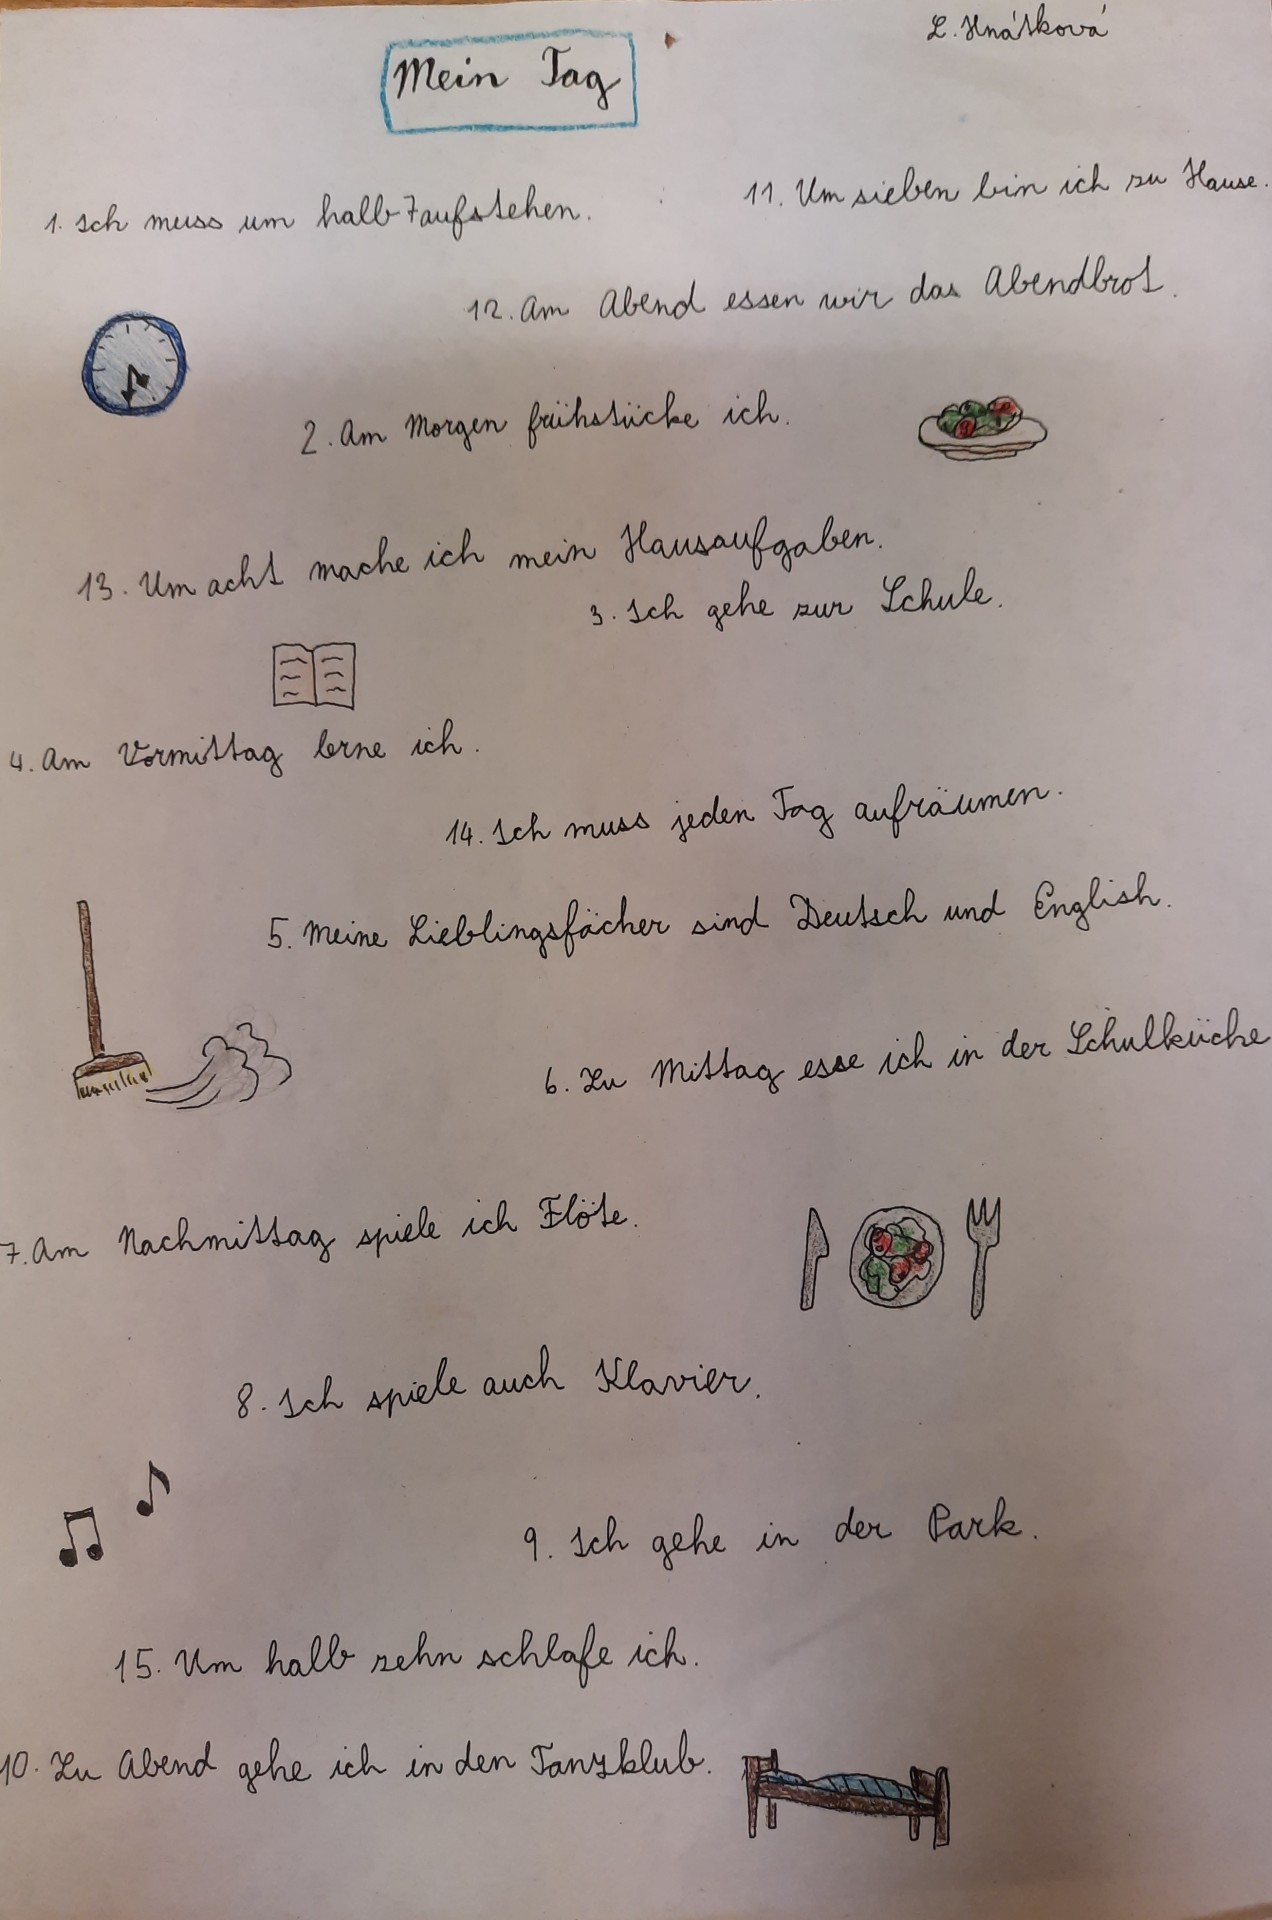 L. Hnátková
Mein Tag
11. Um sieben bin ich zu Hause.
1. Ich muss um halb 7 aufstehen.
12. Am Abend essen wir das Abendbrot.
2. Am Morgen frühstücke ich.
13. Um acht mache ich mein Hausaufgaben.
3. Ich gehe zur Schule.
4. Am Vormittag lerne ich.
14. Ich muss jeden Tag aufräumen.
5. Meine Lieblingsfächer sind Deutsch und English.
6. Zu Mittag esse ich in der Schulküche
7. Am Nachmittag spiele ich Flöte.
8. Ich spiele auch Klavier.
9. Ich gehe in der Park.
15. Um halb zehn schlafe ich.
10. Zu Abend gehe ich in den Tanzklub.